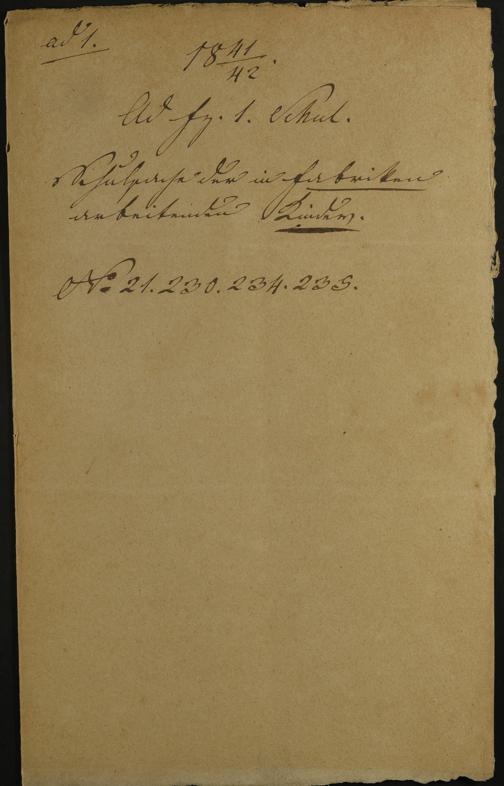 ad 1.
18 41/42.
Ad fz. 1. Schul.
Schulsache der in Fabriken
arbeitenden Kinder.
No 21. 230. 234. 235.